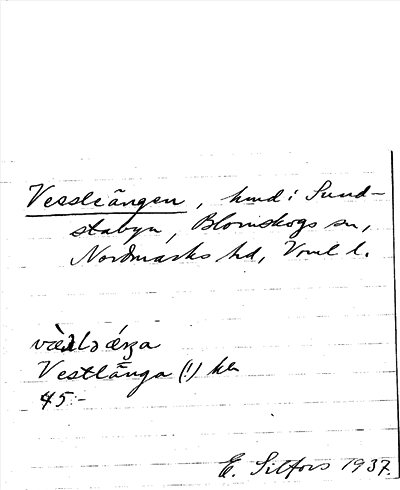 Vessleängen, hmd i Sund-
stabyn, Blomskogs sn,
Nordmarks hd, Vrml l.
væ̀ʟə ǽŋa
Vestlänga (!) kk
45:-
E. Silfors 1937.